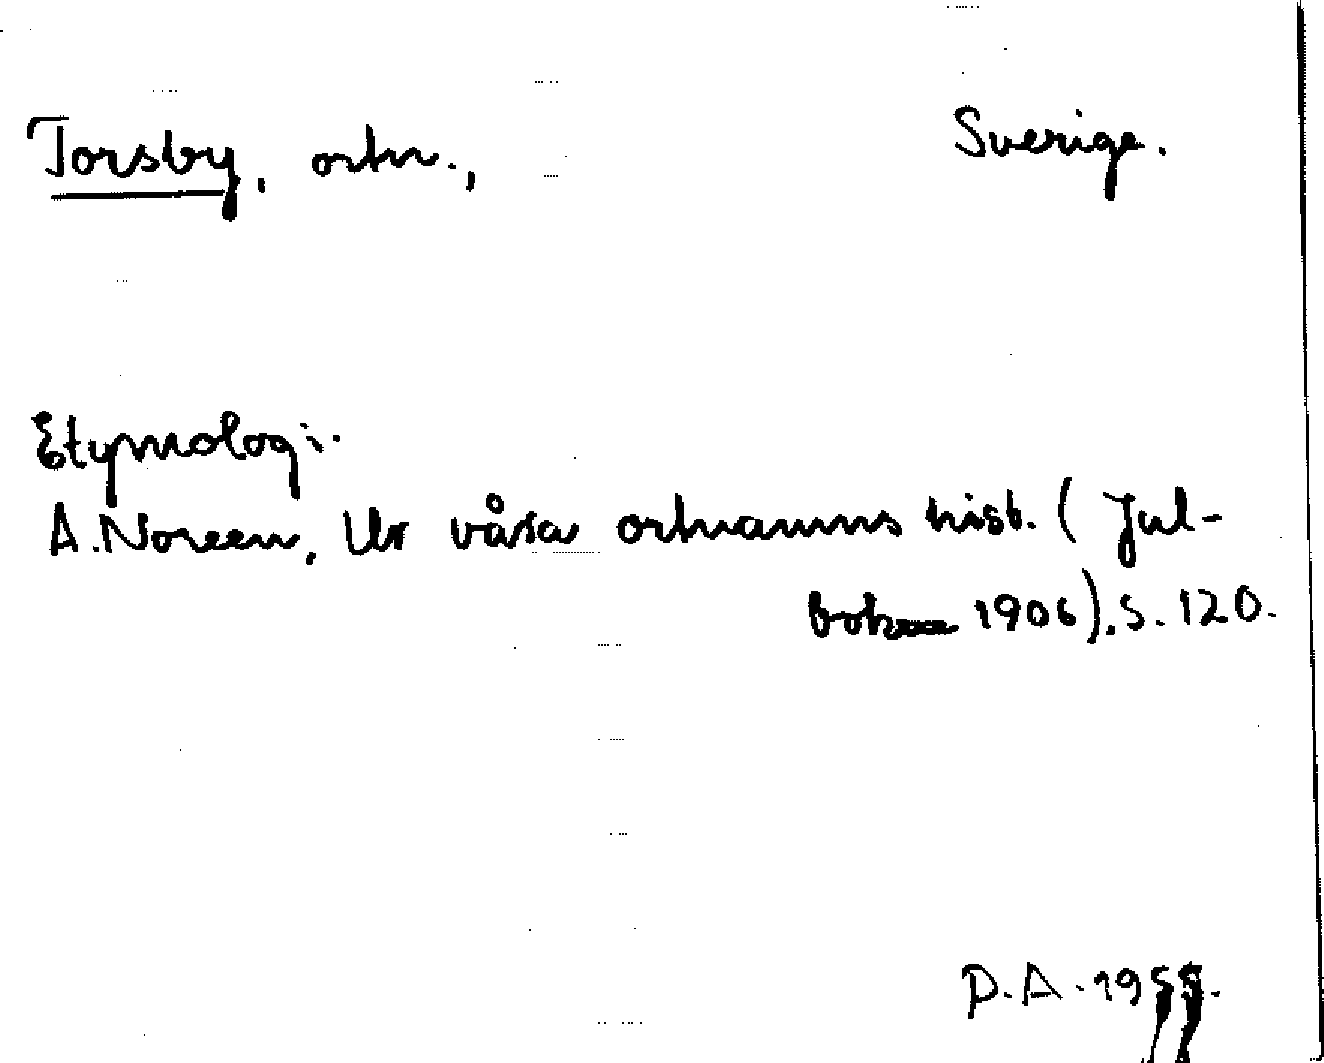 Torsby, ortn., Sverige.
Etymologi:
A. Noreen, Ur våra ortnamns hist. (Jul-
boken 1906). S. 120.
D.A. 1955.